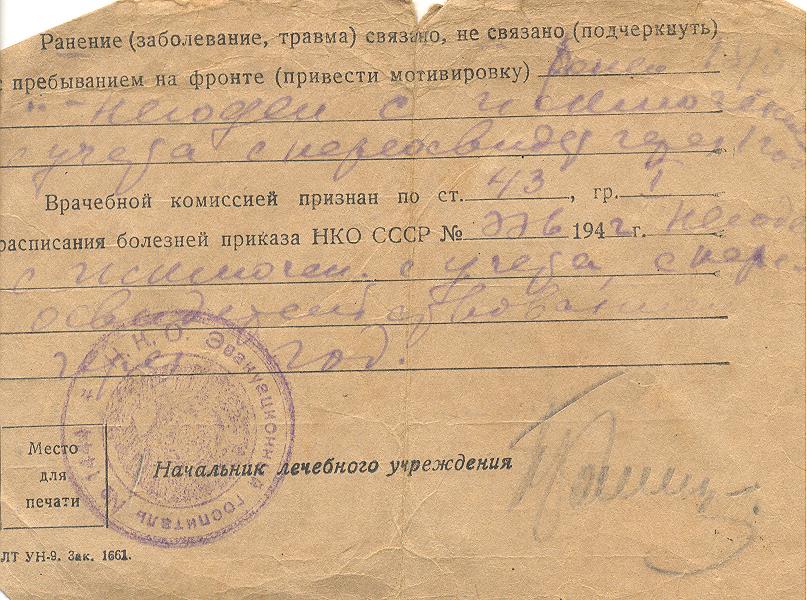 Ранение (заболевание, травма) связано, не связано (подчеркнуть)
с пребыванием на фронте (привести мотивировку) ранен
негоден с исключением
с учета с переосвид через 1 год
Врачебной комиссией признан по ст. 43, гр. I
расписания болезней приказа НКО СССР № 336 1942 г. негоден
с исключен. с учета, с пере-
освидетельствованием
через год.
Н.К.О. Эвакуационный госпиталь №
Место
для
печати
Начальник лечебного учреждения
ЛТ УН-9. Зак. 1661.